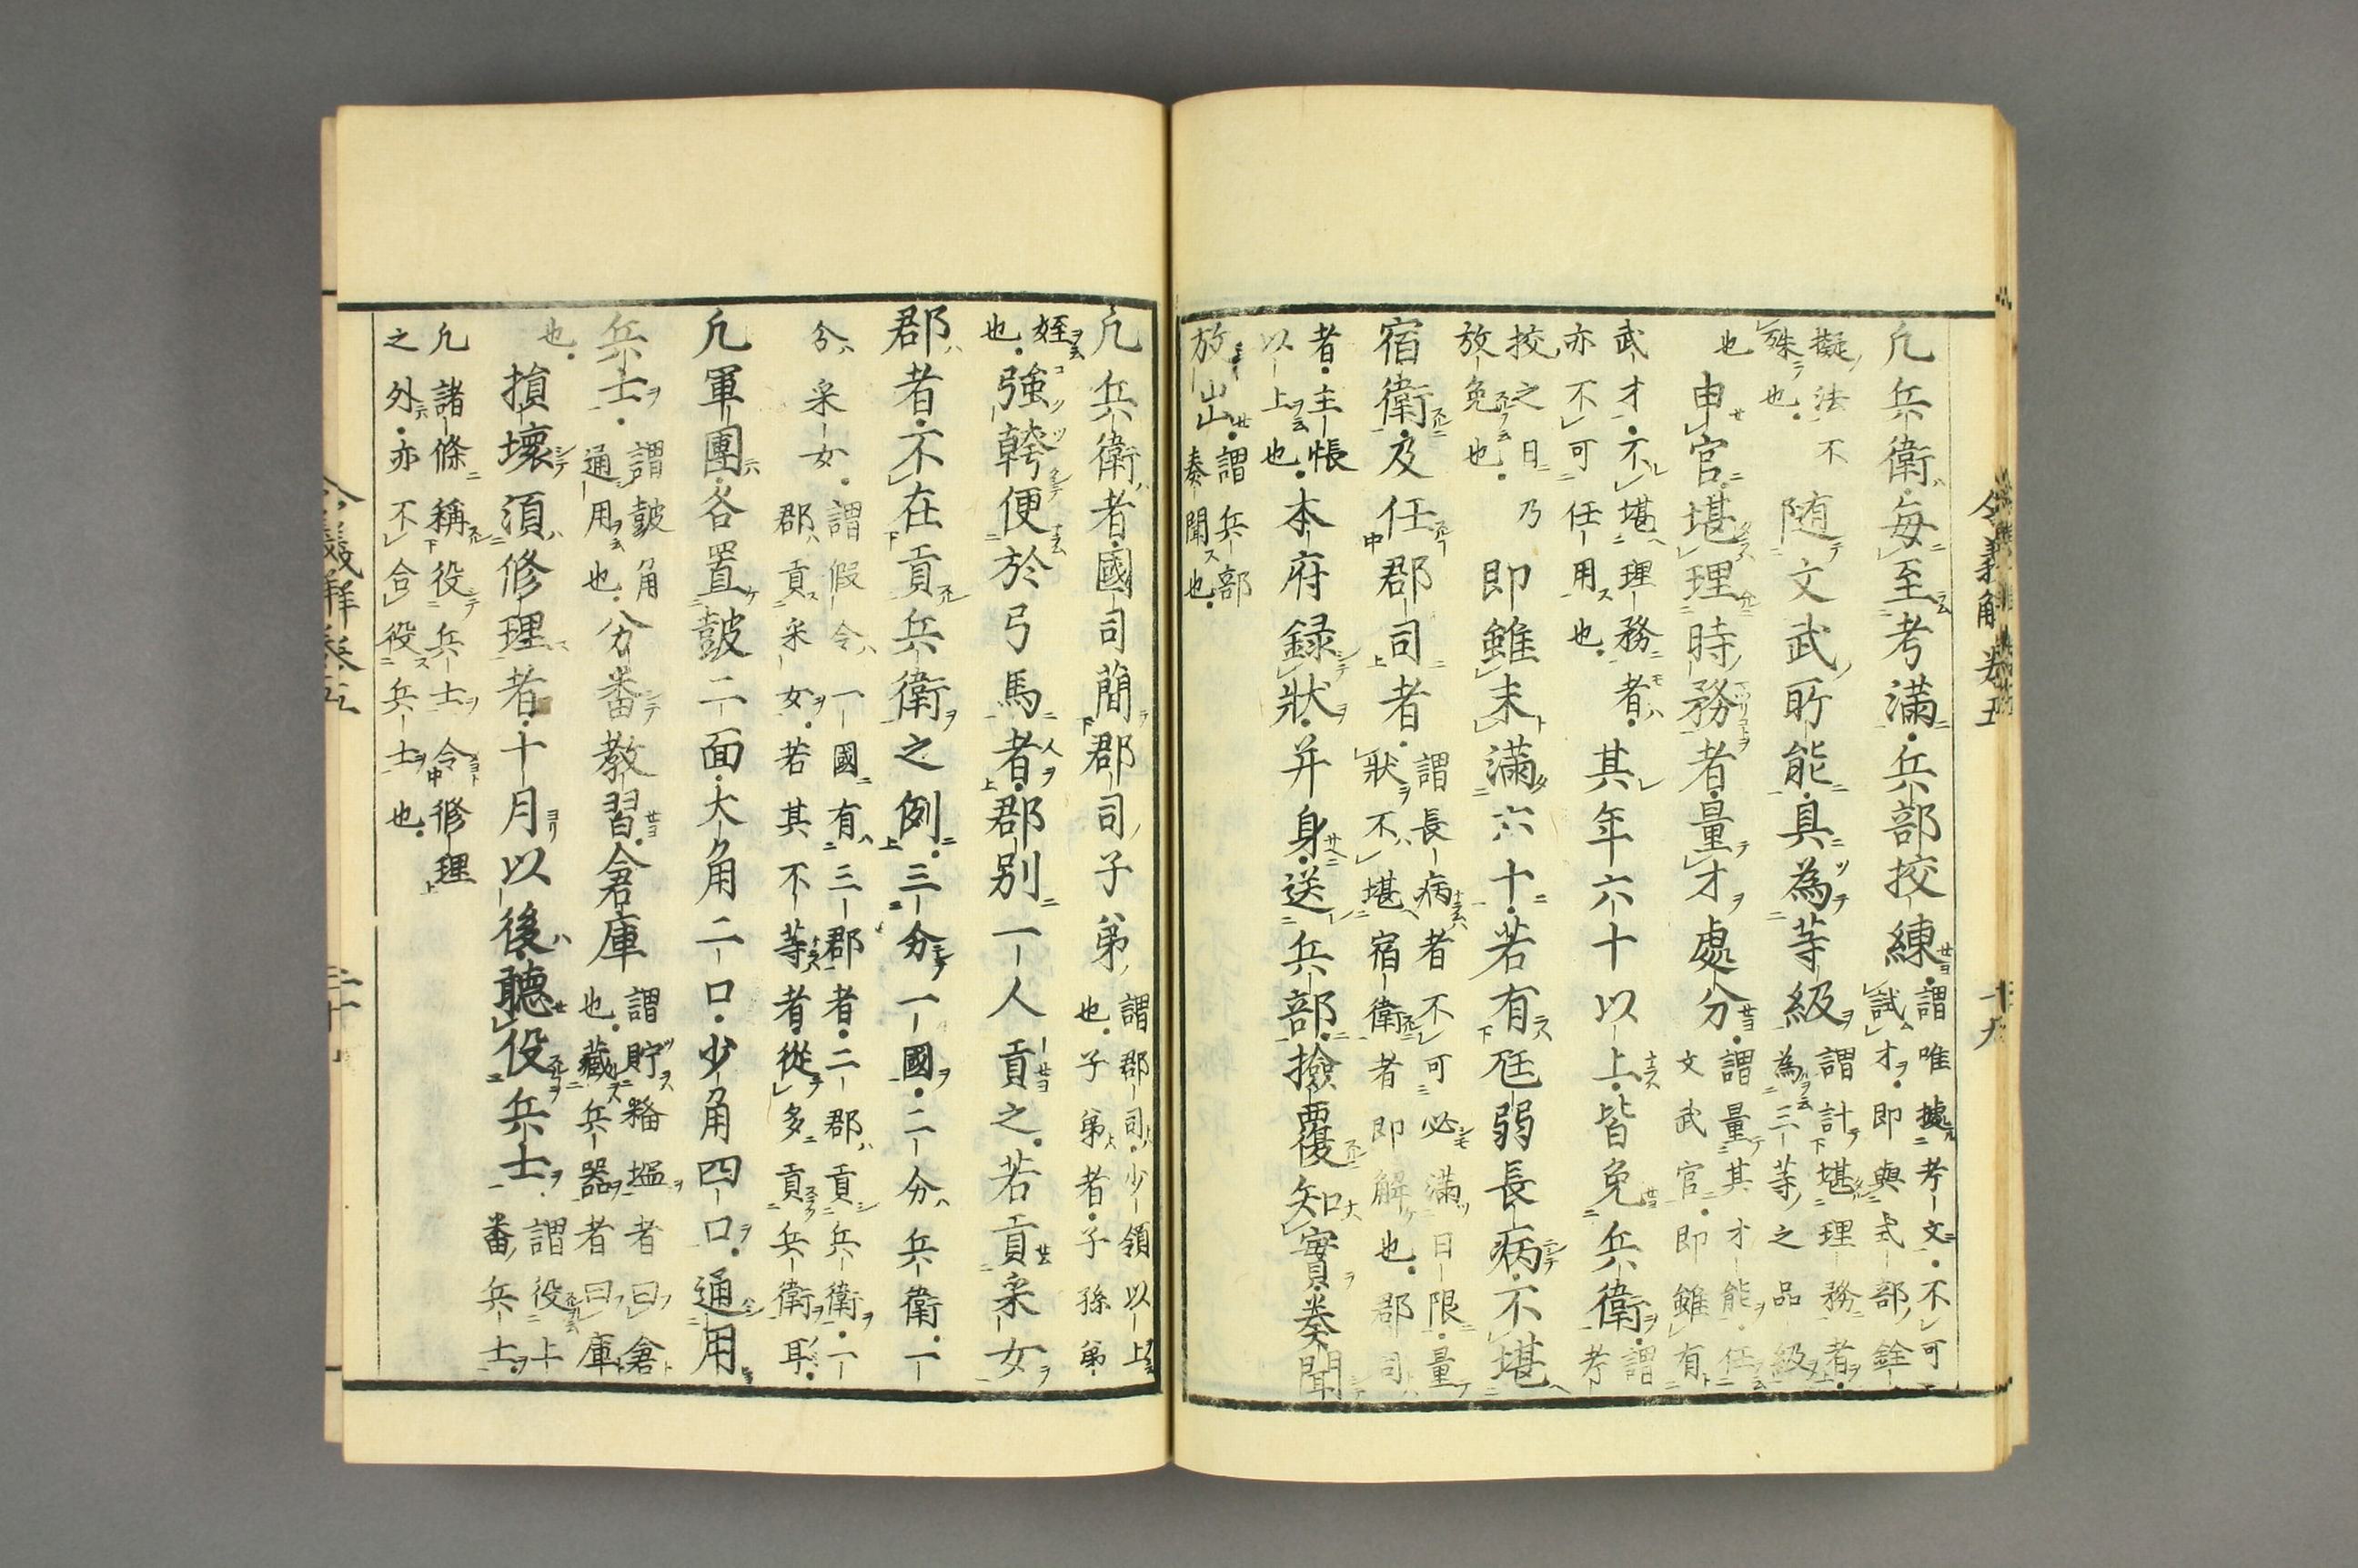 令義解卷五　十九
凢兵衛毎至考滿兵部挍練謂唯據考文不可試才即與式部銓
擬法不殊也随文武所能具為等級謂計堪理務者為三等之品級
也申官堪理時務者量才處分謂量其才能任文武官即雖有
武才不堪理務者亦不可任用也其年六十以上皆免兵衛謂考
挍之日乃放免也即雖未滿六十若有尫弱長病不堪
宿衛及任郡司者謂長病者不可必滿日限量狀不堪宿衛者即解也郡司
者主帳以上也本府録狀并身送兵部撿覆知實奏聞
放出謂兵部奏聞也
凢兵衛者國司簡郡司子弟謂郡司少領以上也子弟者子孫弟
姪也強幹便於弓馬者郡別一人貢之若貢采女
郡者不在貢兵衛之例三分一國二分兵衛一
分采女謂假令一國有三郡者二郡貢兵衛一郡貢采女若其不等者從多貢兵衛耳
凢軍團各置皷二面大角二口少角四口通用
兵士謂皷角通用也分番教習倉庫謂貯粮塩者曰倉也藏兵器者曰庫
也損壞須修理者十月以後聽役兵士謂役上番兵士
凢諸條稱役兵士令修理之外亦不合役兵士也
令義解卷五